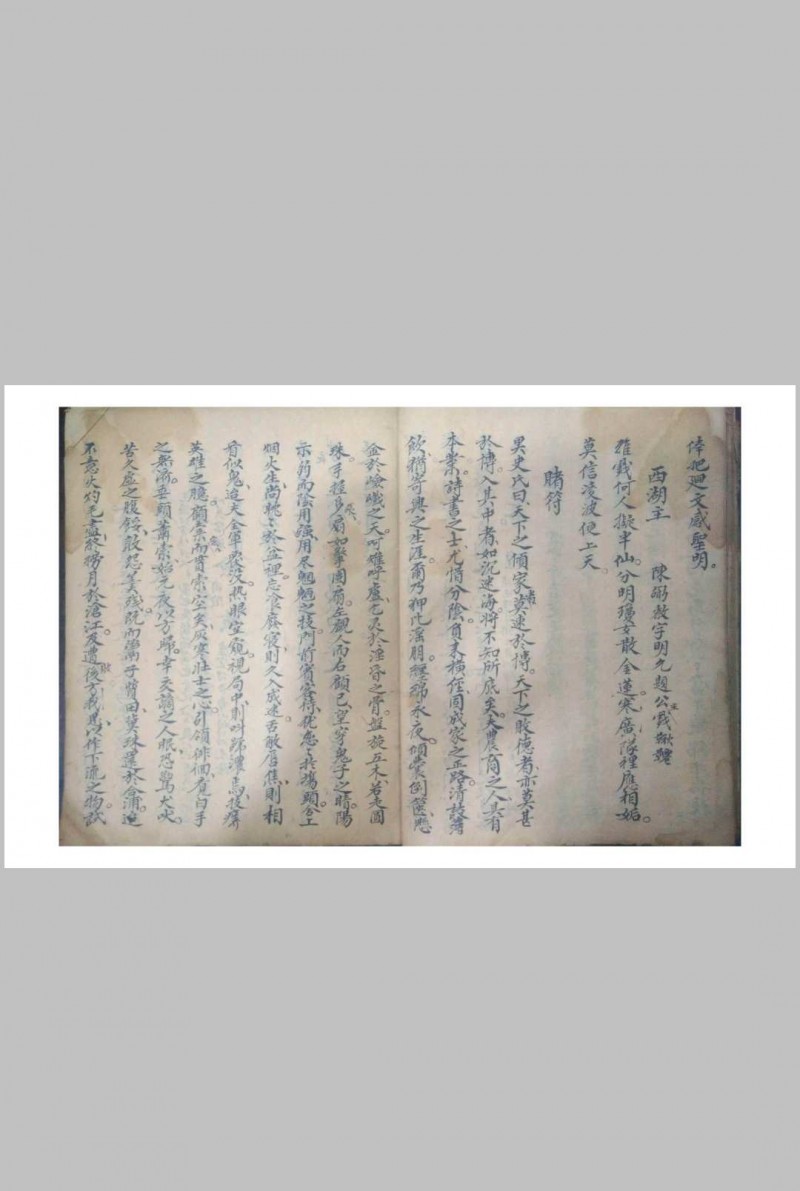 倖把迴文感聖明。
西湖主 陳弼教字明九題公主戲鞦韆
雅戲何人擬半仙。分明瓊女散金蓮。寒廣隊裡應相妬。
莫信凌波便上天。
賭符
異史氏曰。天下之傾家者莫速於博。天下之敗德者。亦莫甚
於博。入其中者。如沉迷海。將不知所底矣。夫農商之人。具有
本業。詩書之士。尤惜分陰。負耒橫經。固成家之正路。清談薄
飲。猶寄興之生涯。爾乃狎比淫朋。纏綿永夜。傾囊倒篋。懸
金於嶮巇之天。呵雉呼盧。乞灵於淫昏之骨。盤旋五木。若走圓
珠。手握多張。如擎團扇。左覷人而右顧己。望穿鬼子之睛。陽
示弱而陰用強。用尽魍魎之技。門前賓客待。犹恋恋於塲頭。舍上
烟火生。尚眈眈於盆裡。忘飡廢寢。則久入成迷。舌敝唇焦。則相
看似鬼。迨夫全軍盡沒。热眼空窺。視局中則叫號濃焉。技癢
英雄之臆。顧橐底而貫索空矣。灰寒壯士之心。引領徘徊。覺白手
之無濟。垂頭蕭索。始元夜以方歸。幸交謫之人眠。恐驚犬吠。
苦久虛之腹餒。敢怨羹殘。既而鬻子質田。冀珠還於合浦。不
意火灼毛盡。終撈月於滄江。及遭敗後方我思。以作下流之物。試